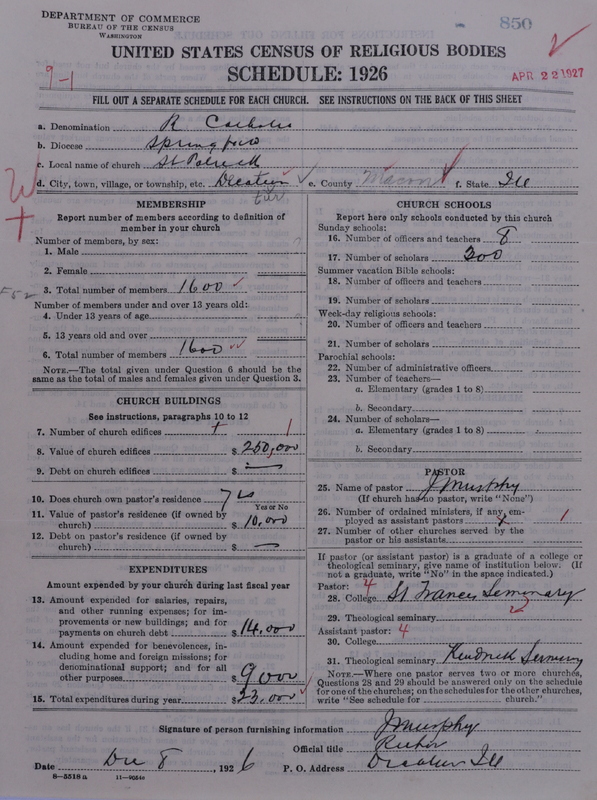 DEPARTMENT OF COMMERCE
BUREAU OF THE CENSUS
WASHINGTON
850
UNITED STATES CENSUS OF RELIGIOUS BODIES
SCHEDULE: 1926
9-1
APR 22 1927
FILL OUT A SEPARATE SCHEDULE FOR EACH CHURCH. SEE INSTRUCTIONS ON THE BACK OF THIS SHEET
a. Denomination R Catholic
b. Diocese Springfield
c. Local name of church St Patrick
d. City, town, village, or township, etc. Decatur e. County Macon f. State Ill
tur
MEMBERSHIP
Report number of members according to definition of
member in your church
Number of members, by sex:
1. Male
2. Female
3. Total number of members 1600
Number of members under and over 13 years old:
4. Under 13 years of age
5. 13 years old and over
6. Total number of members 1600
NOTE.—The total given under Question 6 should be
same as the total of males and females given under Question 3.
CHURCH BUILDINGS
See instructions, paragraphs 10 to 12
7. Number of church edifices 1
8. Value of church edifices $ 250,000
9. Debt on church edifices $ —
10. Does church own pastor's residence Yes
Yes or No
11. Value of pastor's residence (if owned by
church) $ 10,000
12. Debt on pastor's residence (if owned by
church) $ —
EXPENDITURES
Amount expended by your church during last fiscal year
13. Amount expended for salaries, repairs,
and other running expenses; for im-
provements or new buildings; and for
payments on church debt $ 14,000
14. Amount expended for benevolences, in-
cluding home and foreign missions; for
denominational support; and for all
other purposes $ 9000
15. Total expenditures during year $ 23,000
CHURCH SCHOOLS
Report here only schools conducted by this church
Sunday schools:
16. Number of officers and teachers 8
17. Number of scholars 300
Summer vacation Bible schools:
18. Number of officers and teachers
19. Number of scholars
Week-day religious schools:
20. Number of officers and teachers
21. Number of scholars
Parochial schools:
22. Number of administrative officers
23. Number of teachers—
a. Elementary (grades 1 to 8)
b. Secondary
24. Number of scholars—
a. Elementary (grades 1 to 8)
b. Secondary
PASTOR
25. Name of pastor J Murphy
(If church has no pastor, write "None")
26. Number of ordained ministers, if any, em-
ployed as assistant pastors 1
27. Number of other churches served by the
pastor or his assistants
If pastor (or assistant pastor) is a graduate of a college or
theological seminary, give name of institution below: (If
not a graduate, write "No" in the space indicated.)
Pastor: 4
28. College St Frances Seminary
29. Theological seminary 2
Assistant pastor: 4
30. College
31. Theological seminary Kendrick Seminary
NOTE.—Where one pastor serves two or more churches,
Questions 28 and 29 should be answered only on the schedule
for one of the churches; on the schedules for the other churches,
write "See schedule for church."
Signature of person furnishing information J Murphy
Official title Rector
Date Dec 8, 1926 P. O. Address Decatur Ill
8—5518 a 11—9054o